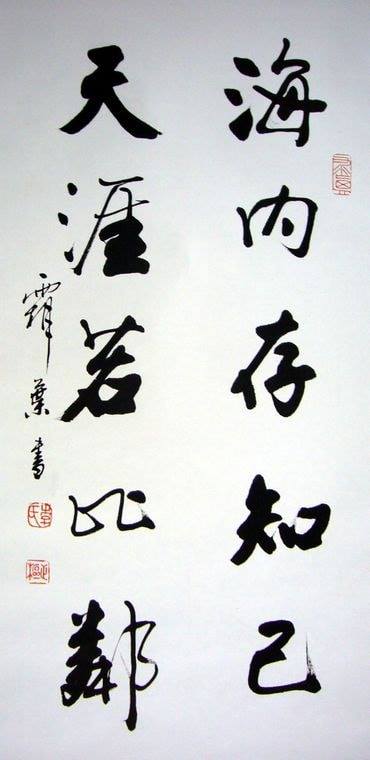 海内存知己
天涯若比鄰
霜葉書
李氏